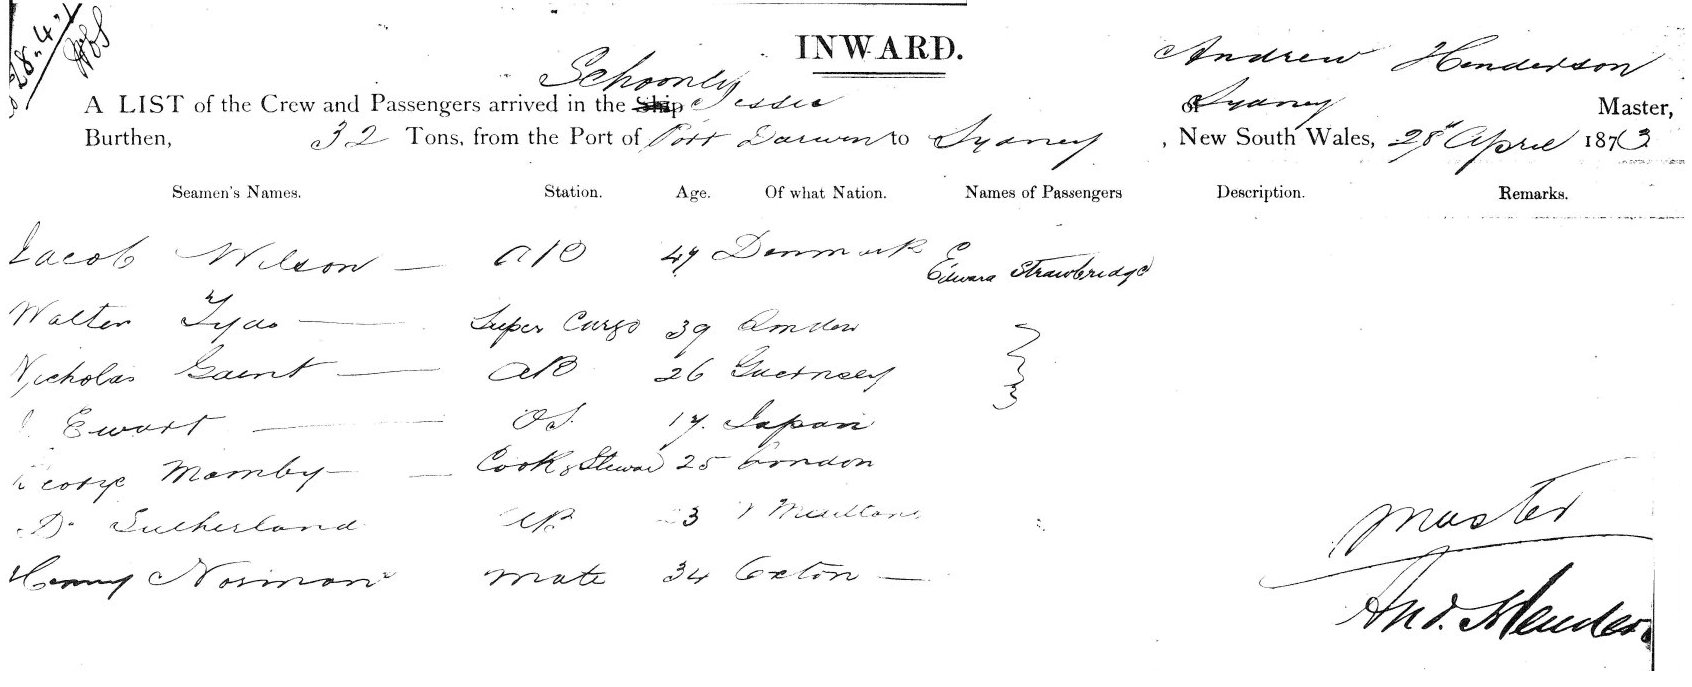 28.4.
INWARD.
Schooner Andrew Henderson
A LIST of the Crew and Passengers arrived in the Ship Jessie of Sydney Master,
Burthen, 32 Tons, from the Port of Port Darwin to Sydney, New South Wales, 28th April 1873
Seamen's Names. Station. Age. Of what Nation. Names of Passengers Description. Remarks.
Jacob Wilson — AB 47 Denmark Edward Strawbridge
Walter — Super Cargo 39 London
Nicholas Gaunt — AB 26 Guernsey
Ewart — OS 17. Japan
George Mamby — Cook & Steward 25 London
D. Sutherland AB 3
Henry Norman Mate 34 —
Master
And. Hender